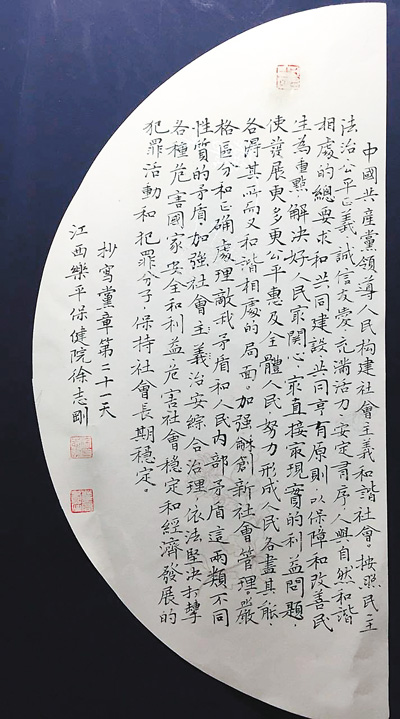 中國共產黨領導人民构建社會主義和諧社會。按照民主
法治、公平正義、誠信友愛、充滿活力、安定有序、人與自然和諧
相處的總要求和共同建設、共同享有原則，以保障和改善民
生為重點，解決好人民最關心、最直接、最現實的利益問題，
使發展更多更公平惠及全體人民，努力形成人民各盡其能、
各得其所而又和諧相處的局面。加強龢創新社會管理。嚴
格區分和正确處理敵我矛盾和人民内部矛盾這兩類不同
性質的矛盾。加強社會主義治安綜合治理，依法堅決打擊
各種危害國家安全和利益、危害社會穩定和經濟發展的
犯罪活動和犯罪分子，保持社會長期穩定。
抄寫黨章第二十一天
江西樂平保健院徐志剛